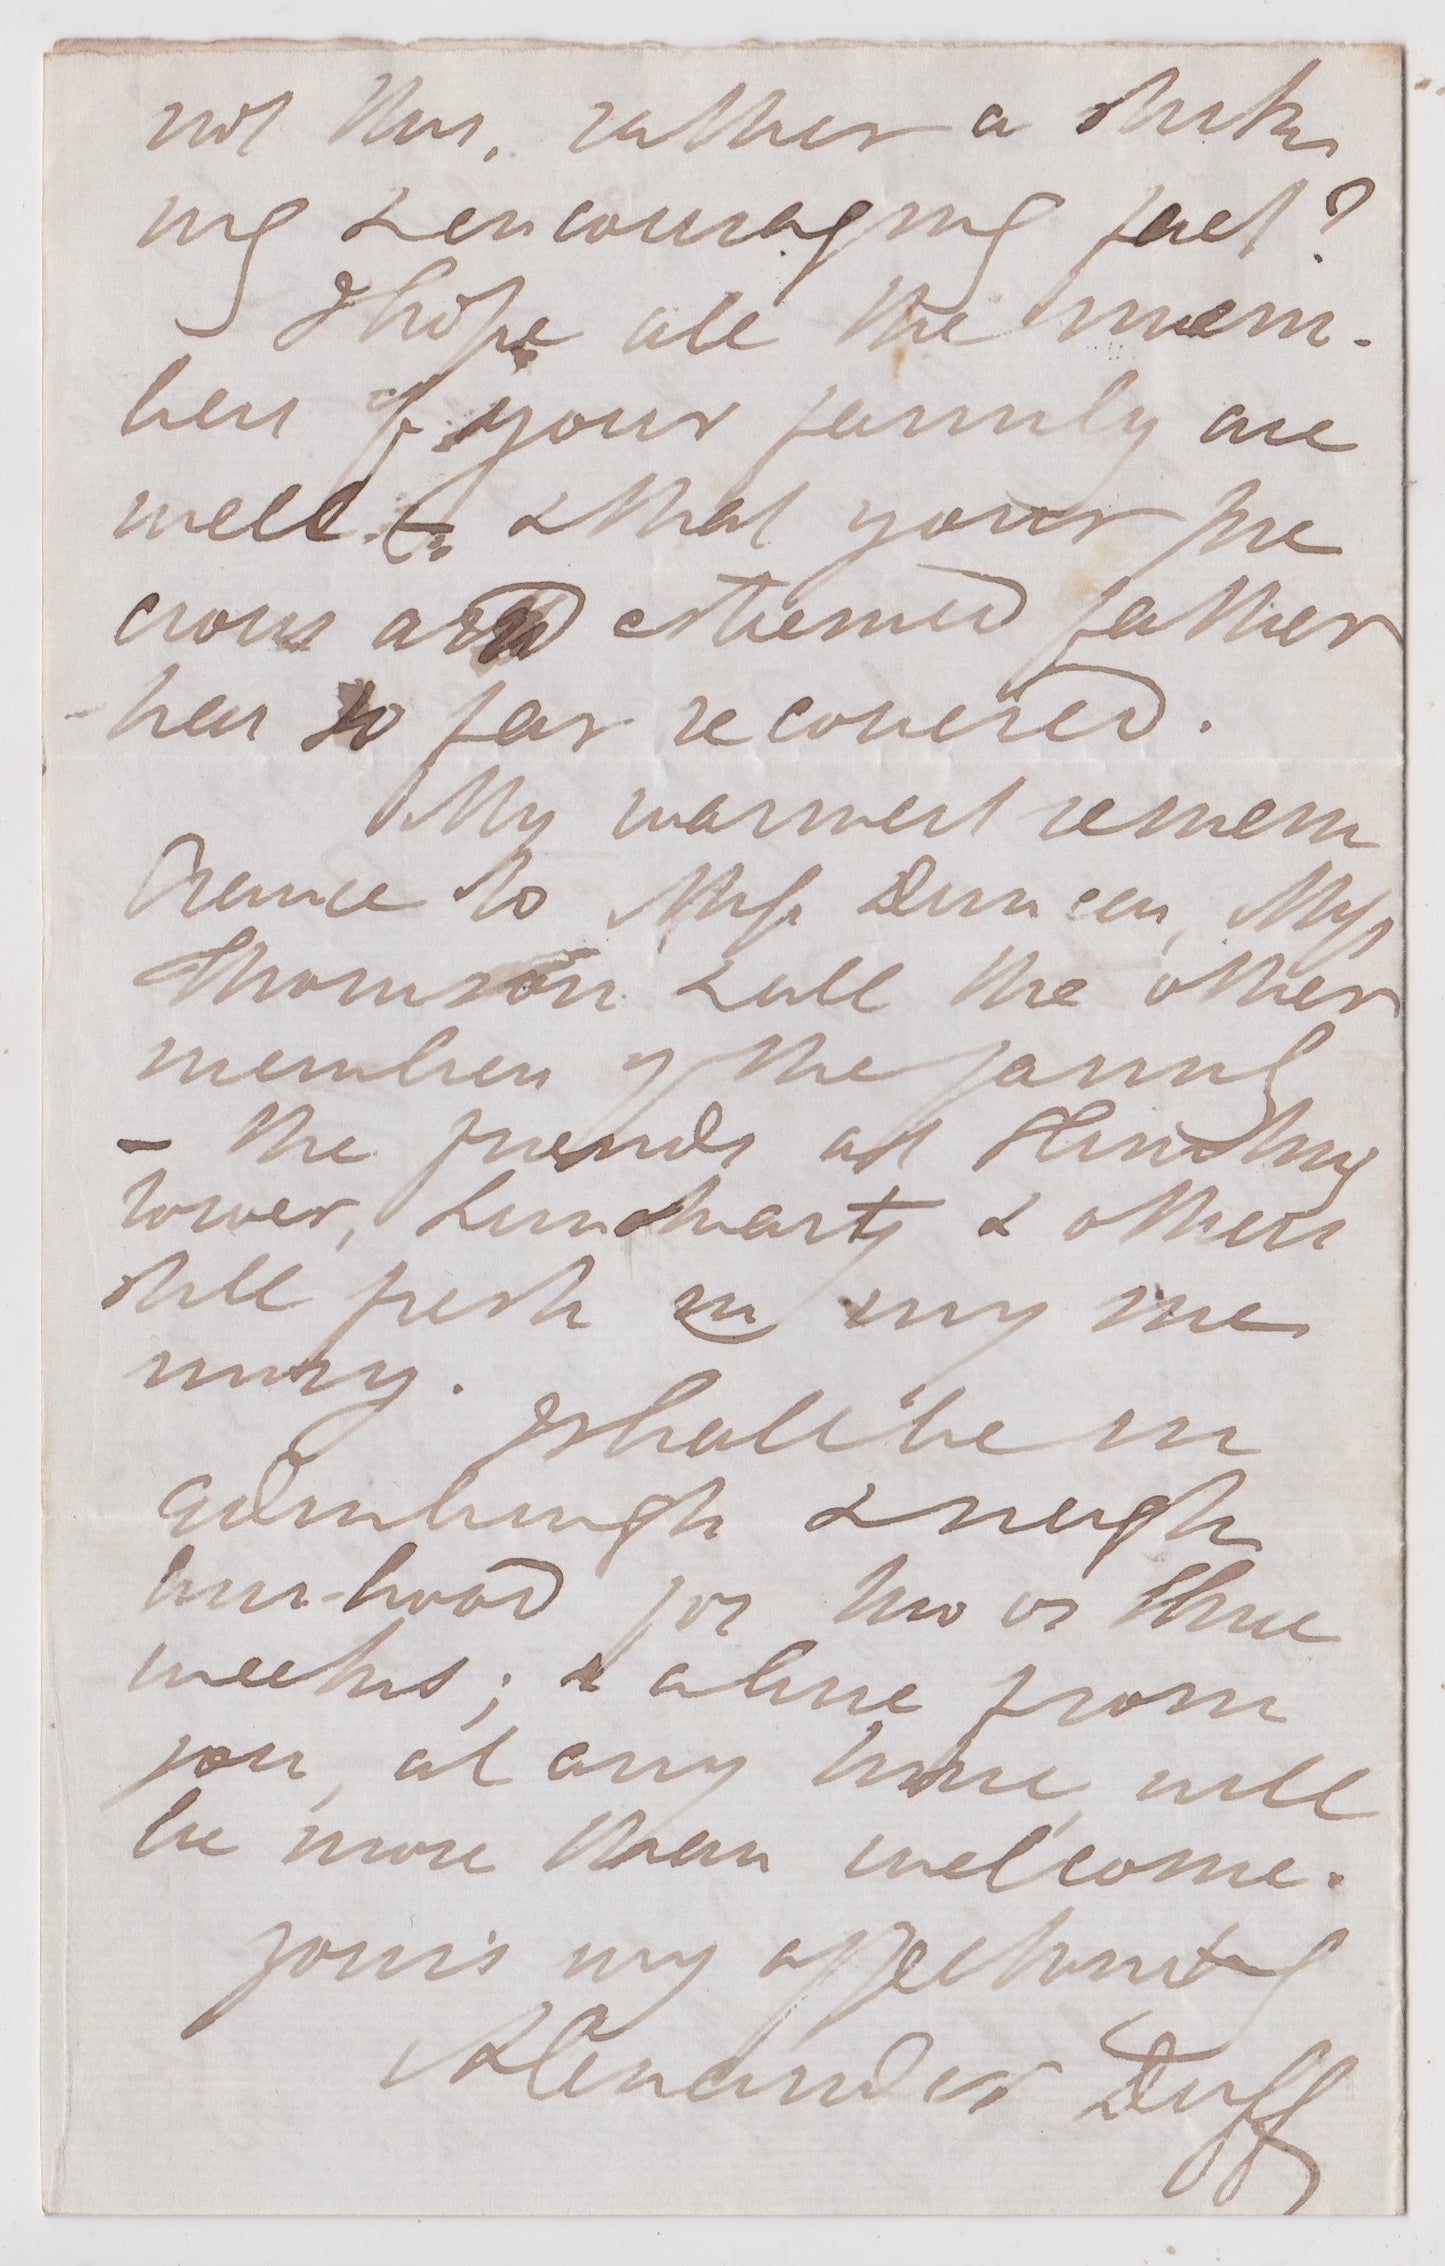 not this, rather a strik
ing & encouraging fact?
I hope all the mem-
bers of your family are
well - & that your pre
cious and esteemed father
has so far recovered.
My warmest remem
brance to Miss Duncan, Miss
Thomson & all the other
members of the family
- the friends at
tower, & others
still fresh in my me
mory.
I shall be in
Edinburgh & neigh
bour-hood for two or three
weeks; & a line from
you, at any time, will
be more than welcome.
Yours very affectionately
Alexander Duff